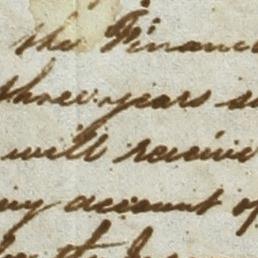 the Financ
three years s
will receive
my account of